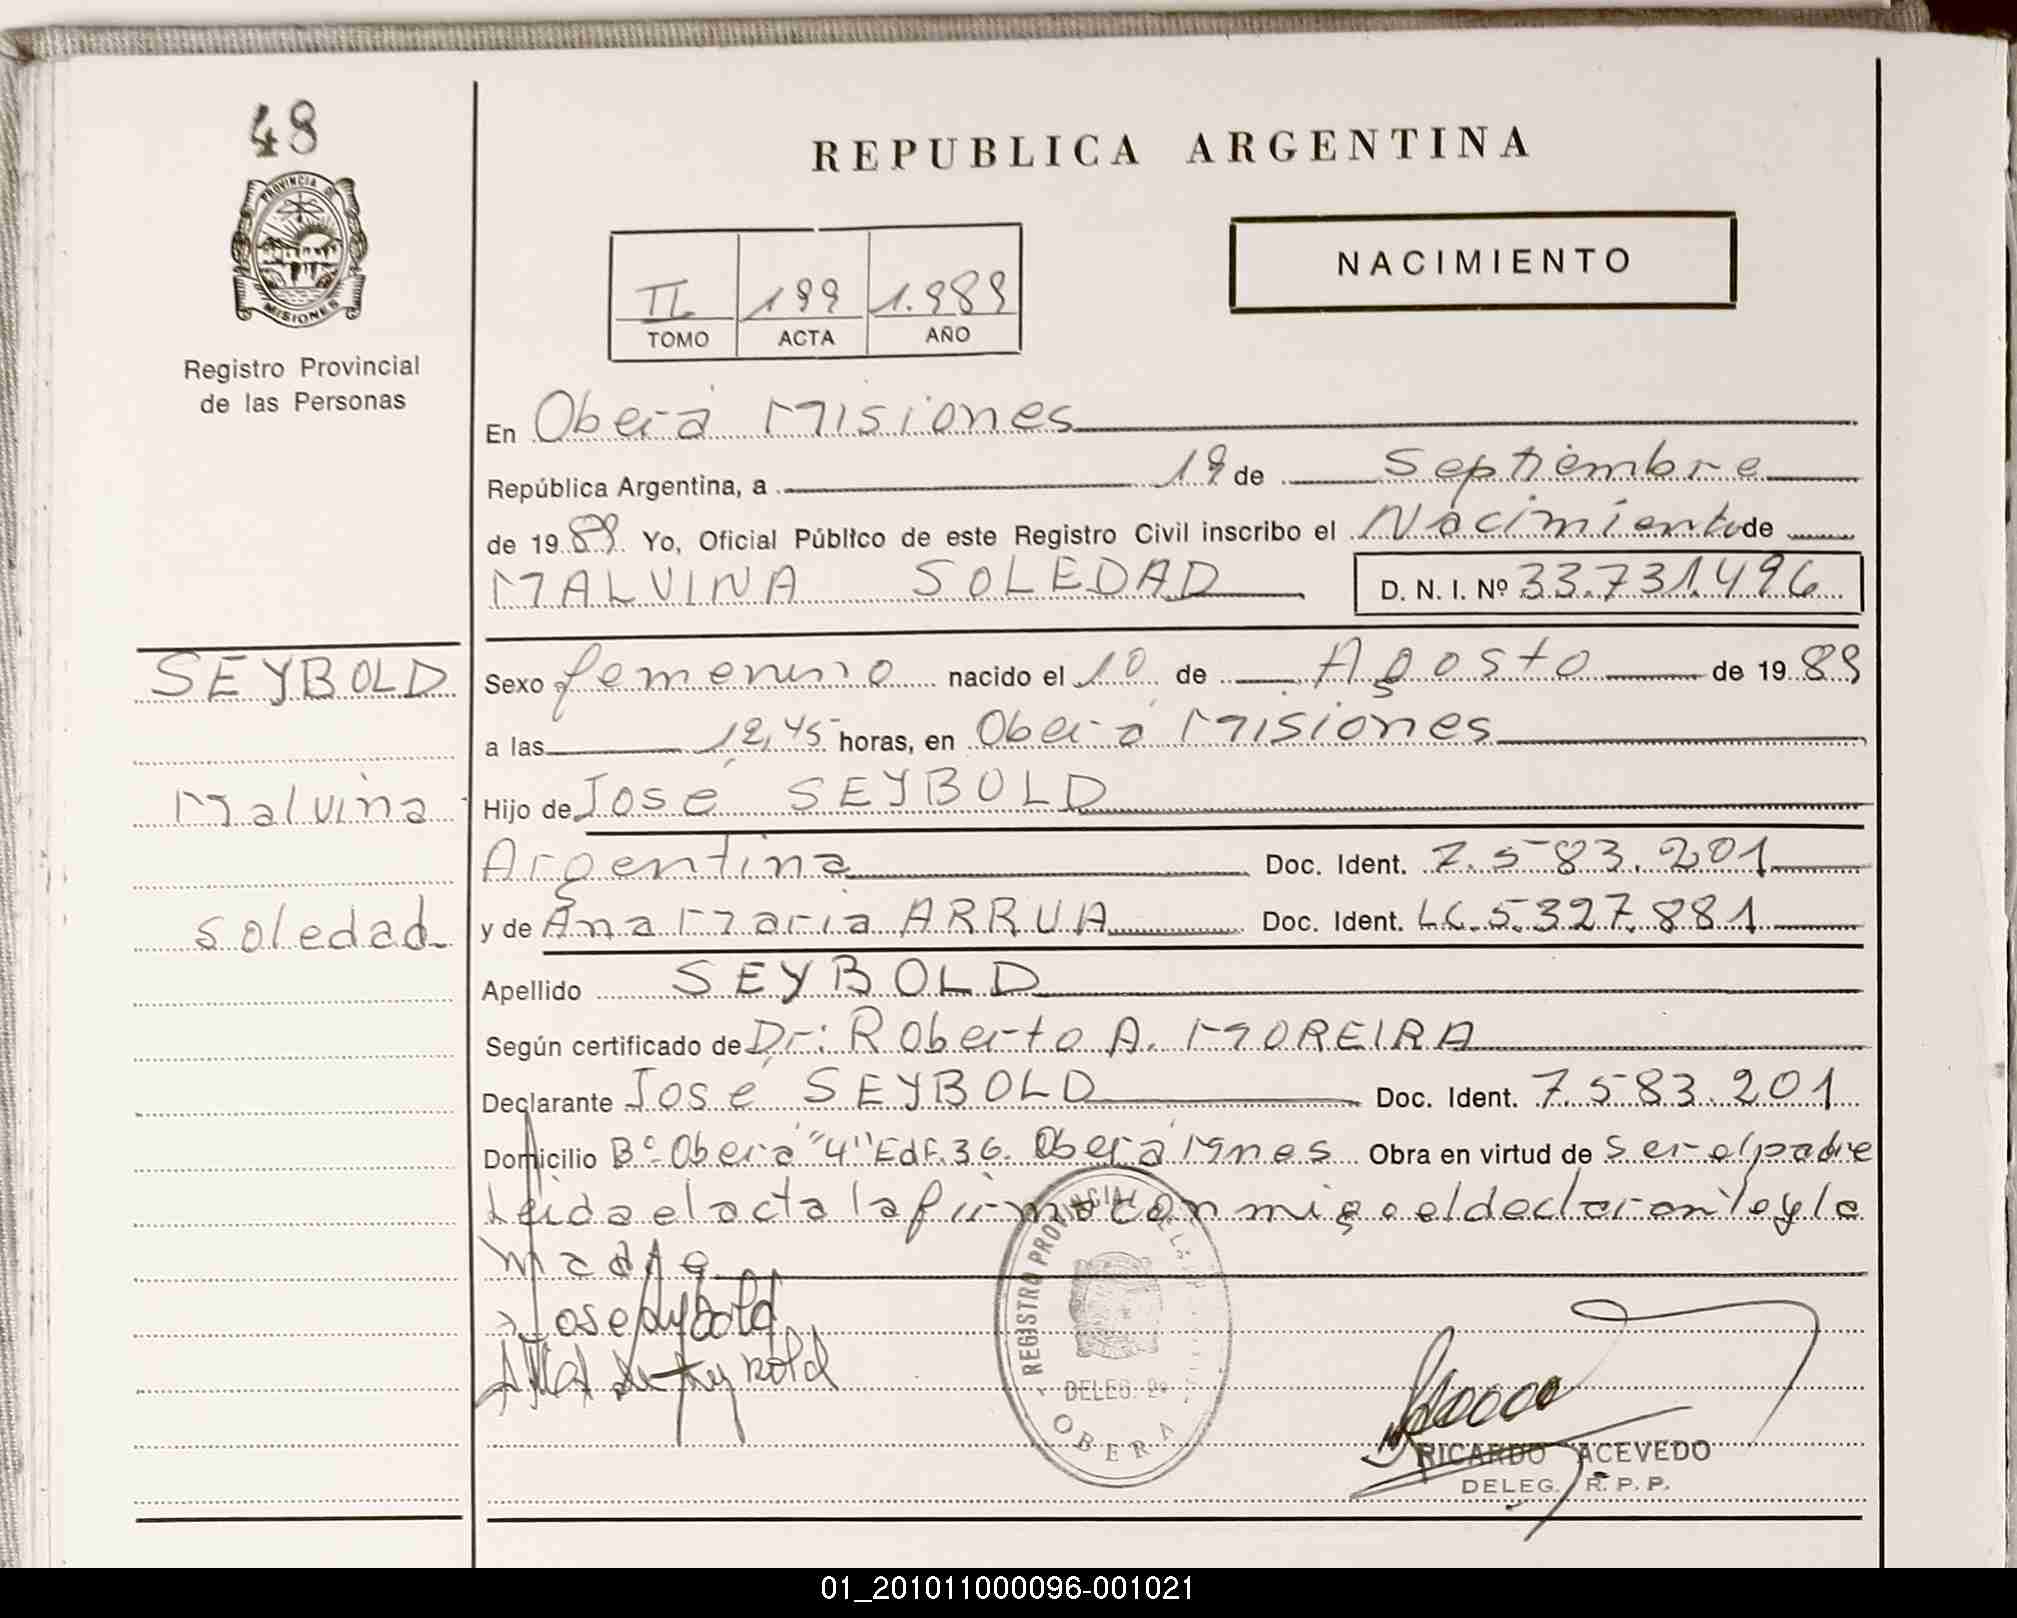 48
PROVINCIA DE
MISIONES
Registro Provincial
de las Personas
REPUBLICA ARGENTINA
NACIMIENTO
II 199 1.989
TOMO ACTA AÑO
En Oberá Misiones
República Argentina, a 19 de Septiembre
de 1989. Yo, Oficial Público de este Registro Civil inscribo el Nacimiento de
MALVINA SOLEDAD D. N. I. Nº 33.731.496
SEYBOLD
Malvina
Soledad
Sexo femenino nacido el 10 de Agosto de 1989
a las 12,45 horas, en Oberá Misiones
Hijo de José SEYBOLD
Argentina Doc. Ident. 7.583.201
y de Ana Maria ARRUA Doc. Ident. LC.5.327.881
Apellido SEYBOLD
Según certificado de Dr: Roberto A. MOREIRA
Declarante José SEYBOLD Doc. Ident. 7.583.201
Domicilio Bº Oberá "4" Edf. 36. Oberá Mnes Obra en virtud de Ser el padre
Leida el acta la firma con migo el declarante y la
madre
REGISTRO PROVINCIAL DE LAS
DELEG. 2ª
OBERA
Jose Seybold
RICARDO ACEVEDO
DELEG. R. P. P.
01_201011000096-001021